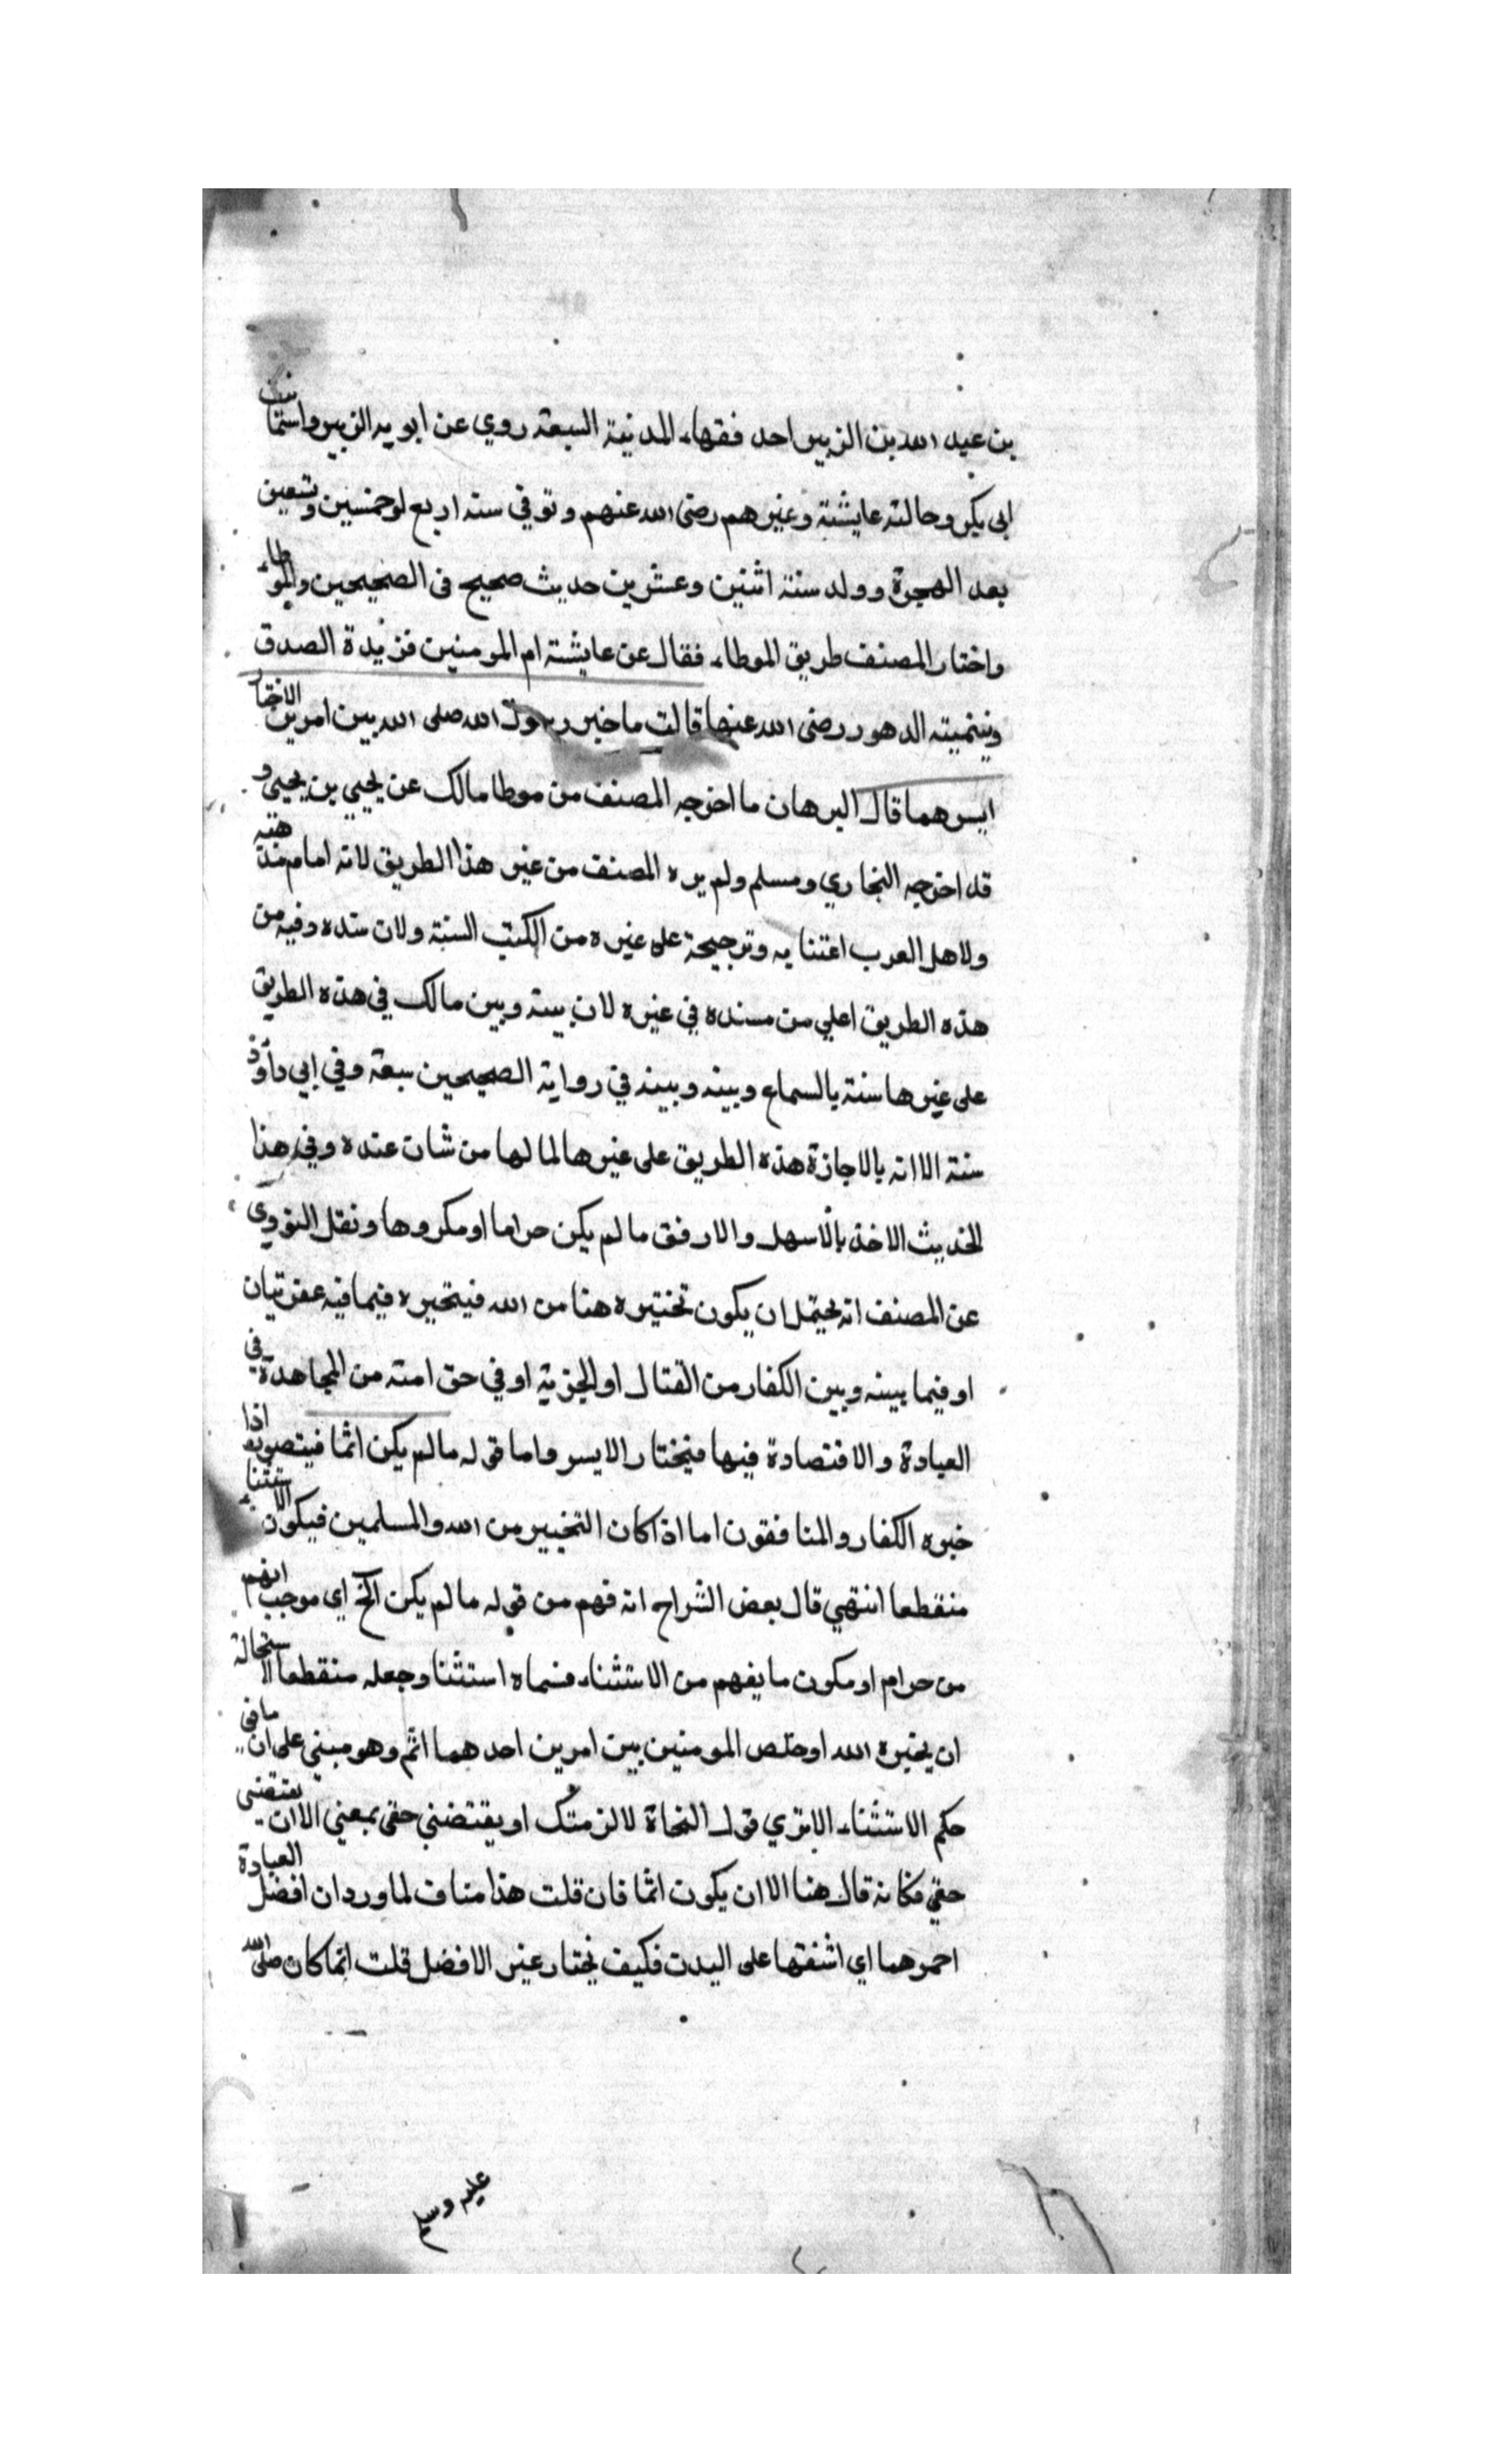 بن عبد الله بن الزبير احد فقهاء المدنية السبعة روي عن ابويه الزبير واسما بنت
ابى بكر وخالته عايشة وغيرهم رضى الله عنهم وتوفي سنة اربع او خمسين وتسعين
بعد الهجرة وولد سنة اثنين وعشرين حديث صحيح فى الصحيحين والموطاء
واختار المصنف طريق الموطاء فقال عن عايشة ام المومنين فريدة الصدق
ويتيمة الدهور رضى الله عنها قالت ما خير رسول الله صلى الله بين امرين الا اختار
ايسرهما قال البرهان ما اخرجه المصنف من موطا مالك عن يحيي بن يحيى و
قد اخرجه البخاري ومسلم ولم يره المصنف من غير هذا الطريق لانه امام مذهبه
ولاهل العرب اعتنا به وترجيحة على غيره من الكتب الستة ولان سنده وفيه من
هذه الطريق اعلي من مسنده في غيره لان بينة وبين مالك في هذه الطريق
على غيرها ستة بالسماع وبينه وبينه في رواية الصحيحين سبعة وفي ابي داؤد
ستة الا انه بالاجازة هذه الطريق على غيرها لما لها من شان عنده وفي هذا
الحديث الاخذ بالاسهل والارفق ما لم يكن حراما او مكروها ونقل النووى
عن المصنف انه يحتمل ان يكون تخييره هنا من الله فيخيره فيما فيه عقوبتان
او فيما بينه وبين الكفار من القتال او الجزية او في حق امته من المجاهدة في
العبادة والاقتصادة فيها فيختار الايسر واما قوله ما لم يكن اثما فيتصور اذا
خيره الكفار والمنافقون اما اذا كان التخيير من الله والمسلمين فيكون الاستثناء
منقطعا انتهي قال بعض الشراح انه فهم من قوله ما لم يكن الخ اي موجب اثم
من حرام او مكون ما يفهم من الاستثناء فسماه استثنا وجعله منقطعا لاستحالة
ان يخيره الله او خلص المومنين بين امرين احدهما اثم وهو مبني على ان ما في
حكم الاستثناء الا تري قول النحاة لالزمنك او يقتضنى حقى بمعني الا ان يقتضنى
حقي فكانه قال هنا الا ان يكون اثما فان قلت هذا مناف لما ورد ان افضل العبادة
احمزهما اي اشقتها على البدن فكيف يختار غير الافضل قلت انما كان صلى الله
عليه وسلم